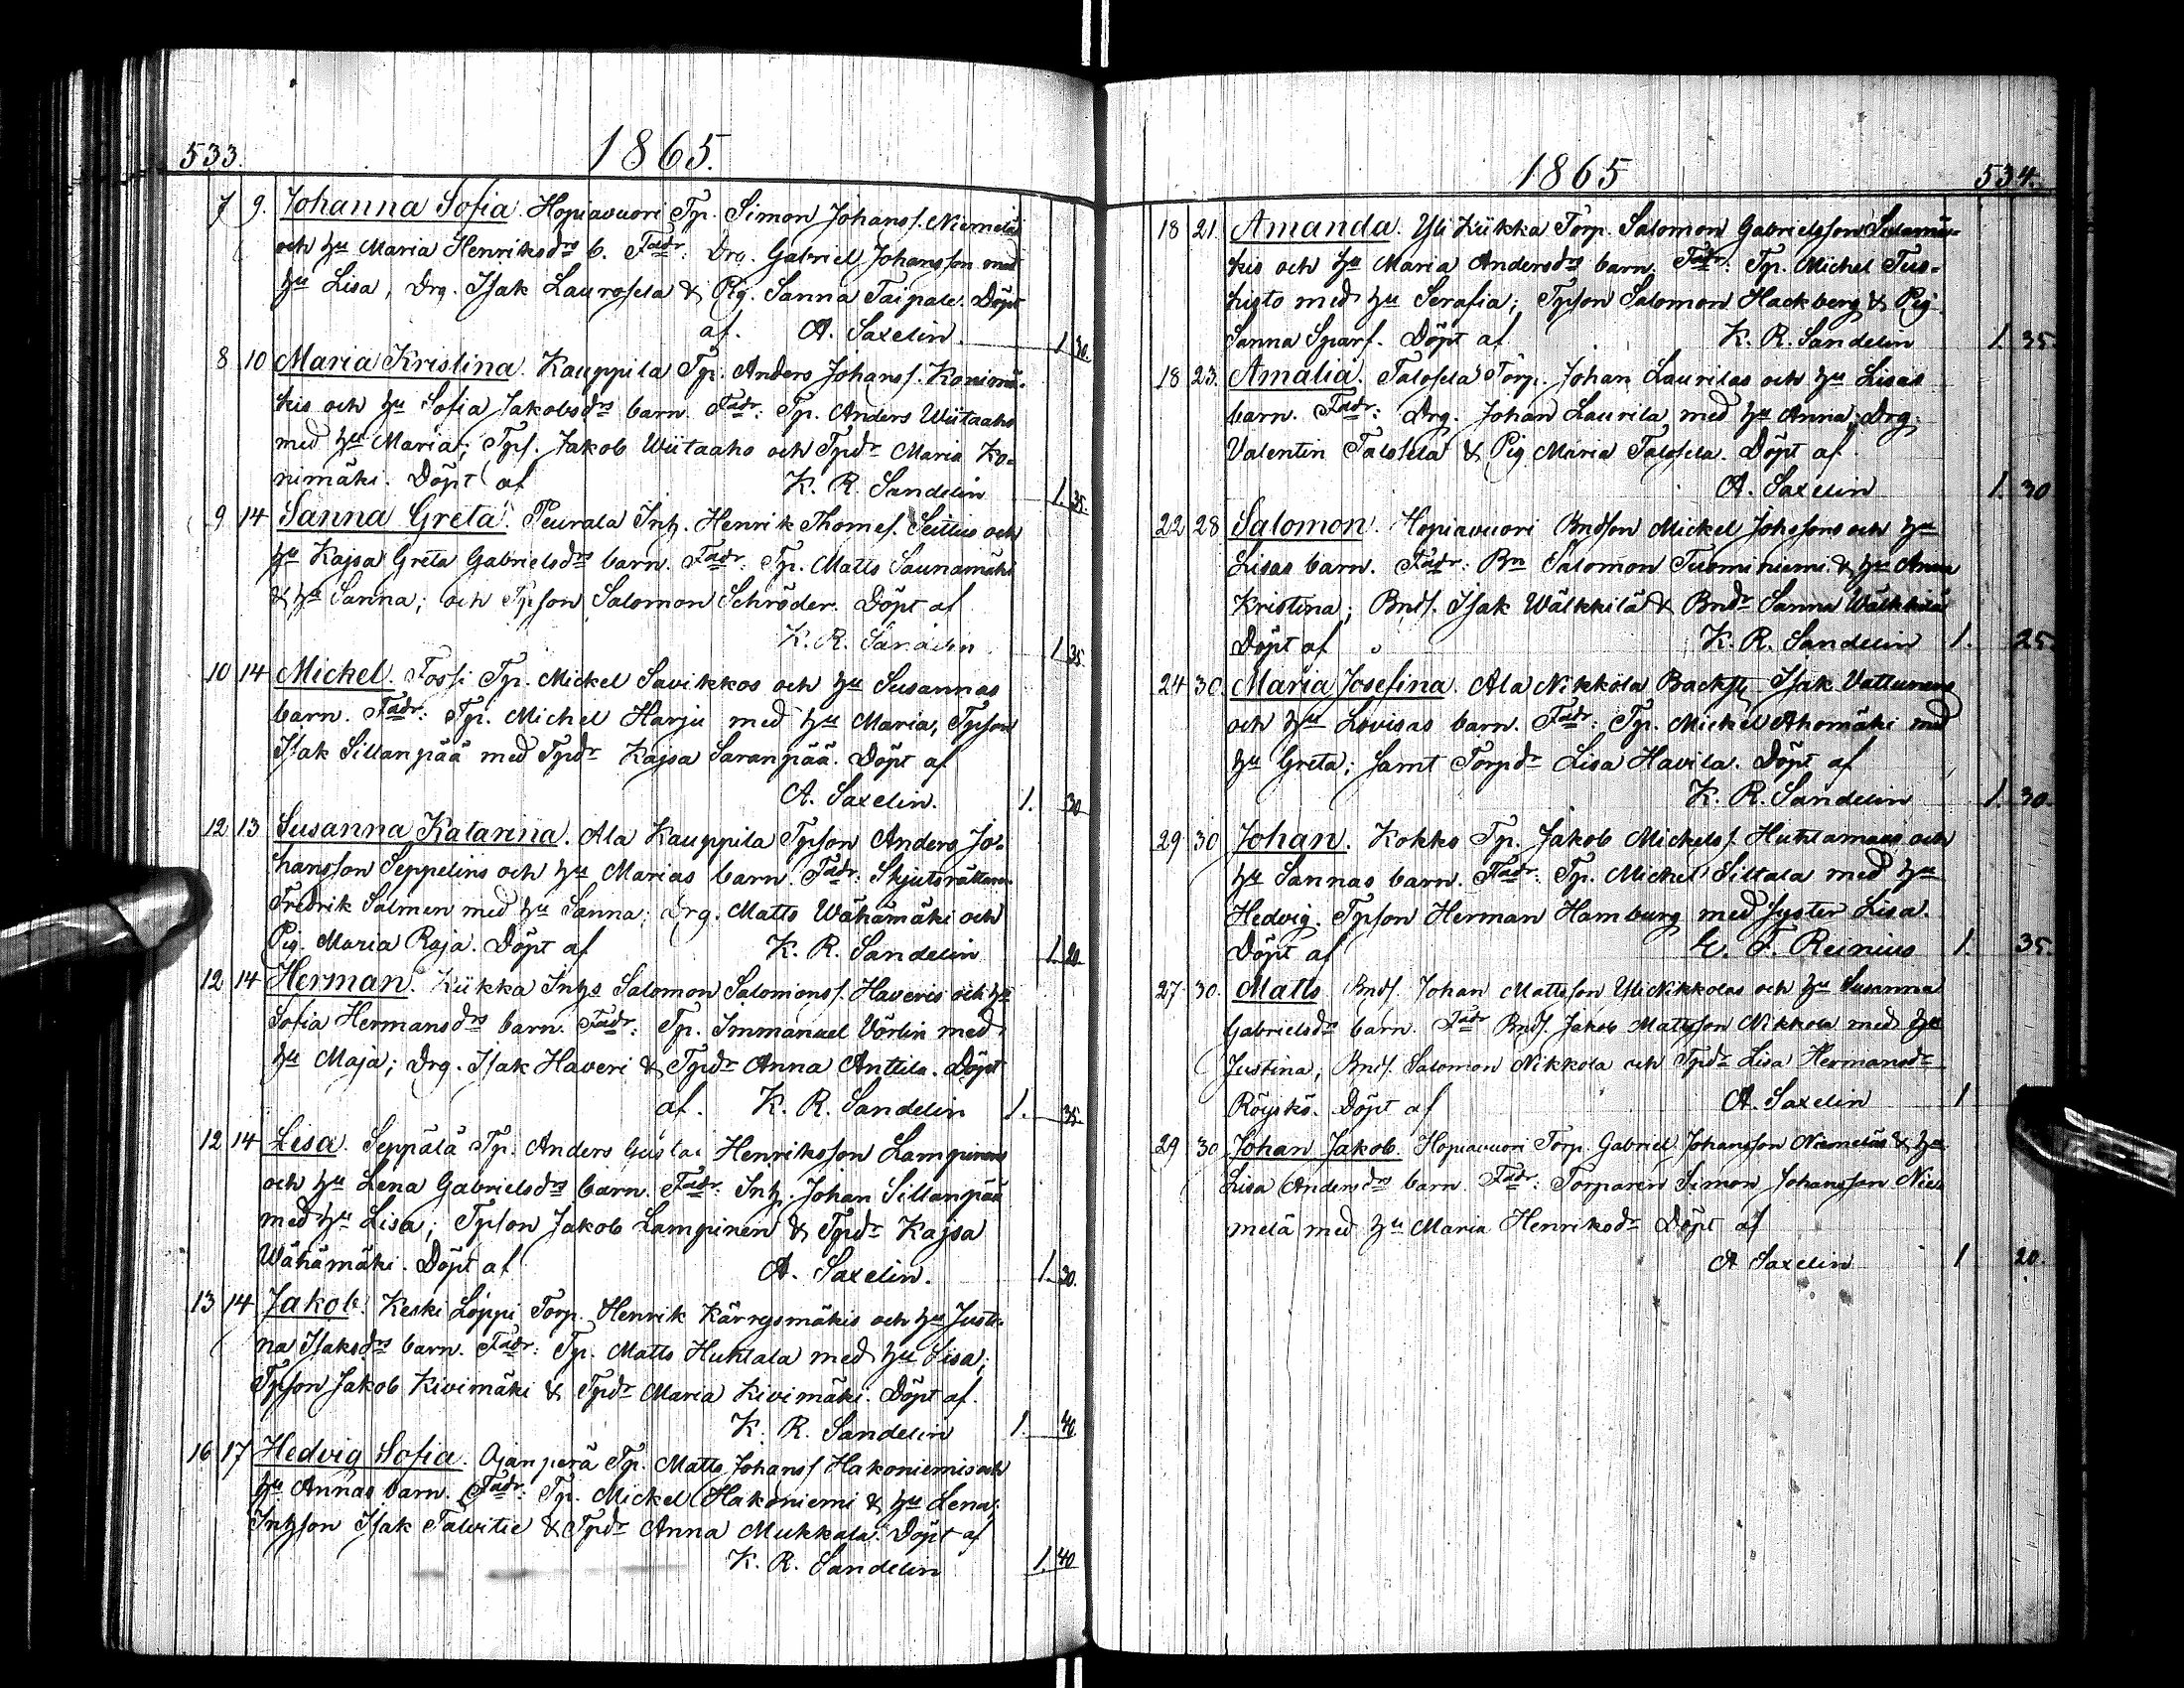 533.
1865.
7 9. Johanna Sofia. Hopiavuori Tp. Simon Johanss. Niemeläs
och hu Maria Henriksdrs b. Fadr: Drg. Gabriel Johansson med
hu Lisa, Drg. Isak Laurosela & Pig. Sanna Taipale. Döpt
af. A. Saxelin. 1 30.
8 10 Maria Kristina. Kauppila Tp. Anders Johanss. Konimä-
kis och hu Sofia Jakobsdrs barn. Fadr: Tp. Anders Wiitaaho
med hu Maria; Tps. Jakob Wiitaaho och Tpdr Maria Ko-
nimäki. Döpt af K. R. Sandelin 1. 35.
9 14 Sanna Greta. Peurala Inh. Henrik Thomes. Seillius och
hu Kajsa Greta Gabrielsdrs barn. Fadr: Tp. Matts Saunamäki
& hu Sanna; och Tpson Salomon Schröder. Döpt af
K. R. Sandelin 1 35.
10 14 Michel. Fossi Tp. Mickel Savikkos och hu Susannas
barn. Fadr: Tp. Michel Harju med hu Maria, Tpson
Isak Sillanpää med Tpdr Kajsa Saranpää. Döpt af
A. Saxelin. 1. 30
12 13 Susanna Katarina. Ala Kauppila Tpson Anders Jo-
hansson Seppelins och hu Marias barn. Fadr: Skjutsrättaren
Fredrik Salmen med hu Sanna; Drg. Matts Wähämäki och
Pig. Maria Raja. Döpt af K. R. Sandelin 1. 20.
12 14 Herman. Kiikka Inhs Salomon Salomonss. Haveris och hu
Sofia Hermansdrs barn. Fadr: Tp. Immanuel Vörlin med
hu Maja; Drg. Isak Haveri & Tpdr Anna Anttila. Döpt
af. K. R. Sandelin 1. 35.
12 14 Lisa. Seppälä Tp. Anders Gustaf Henriksson Lampinens
och hu Lena Gabrielsdrs barn. Fadr: Inh. Johan Sillanpää
med hu Lisa; Tpson Jakob Lampinen & Tpdr Kajsa
Wähämäki. Döpt af A. Saxelin. 1. 30.
13 14 Jakob. Keski Löppi Torp. Henrik Kärrysmäkis och hu Justi-
na Isaksdrs barn. Fadr: Tp. Matts Huhtala med hu Lisa;
Tpson Jakob Kivimäki & Tpdr Maria Kivimäki. Döpt af.
K. R. Sandelin 1. 40.
16 17 Hedvig Sofia. Ojanperä Tp. Matts Johanss Hakoniemis och
hu Annas barn. Fadr: Tp. Mickel Hakoniemi & hu Lena;
Inhson Isak Talvitie & Tpdr Anna Mukkala. Döpt af
K. R. Sandelin 1. 40
1865
534.
18 21. Amanda. Yli Kiikka Torp. Salomon Gabrielsson
kis och hu Maria Andersdrs barn. Fadr: Tp. Michel Tus-
histo med hu Serafia; Tpson Salomon Hackberg & Pig
Sanna Sparf. Döpt af K. R. Sandelin 1. 35.
18 23. Amalia. Talosela Torp. Johan Laurilas och hu Lisas
barn. Fadr: Drg. Johan Laurila med hu Anna; Drg.
Valentin Talosela & Pig Maria Talosela. Döpt af.
A. Saxelin 1. 30
22 28 Salomon. Hopiavuori Bndson Mickel Johssons och hu
Lisas barn. Fadr: Bn Salomon Tuominiemi & hu Anna
Kristina; Bnds. Isak Wälkkilä & Bndr Sanna Wälkkilä
Döpt af K. R. Sandelin 1. 25.
24 30. Maria Josefina. Ala Nikkola Backst. Isak Vattunens
och hu Lovisas barn. Fadr: Tp. Mickel Ahomäki med
hu Greta; samt Torpdr Lisa Havila. Döpt af
K. R. Sandelin 1. 30.
29 30 Johan. Kokko Tp. Jakob Michelss. Huhtamaas och
hu Sannas barn. Fadr: Tp. Michel Siltala med hu
Hedvig. Tpson Herman Hamburg med syster Lisa.
Döpt af E. F. Reinius 1. 35.
27 30. Matts Bnds. Johan Mattsson Yli Nikkolas och hu Susanna
Gabrielsdrs barn. Fadr Bnds. Jakob Mattsson Nikkola med hu
Justina; Bnds. Salomon Nikkola och Tpdr Lisa Hermansdr
Röyskö. Döpt af A. Saxelin 1
29 30 Johan Jakob. Hopiavuori Torp. Gabriel Johansson Niemeläs & hu
Lisa Andersdrs barn. Fadr: Torparen Simon Johansson Nie-
melä med hu Maria Henriksdr Döpt af
A Saxelin 1 20.